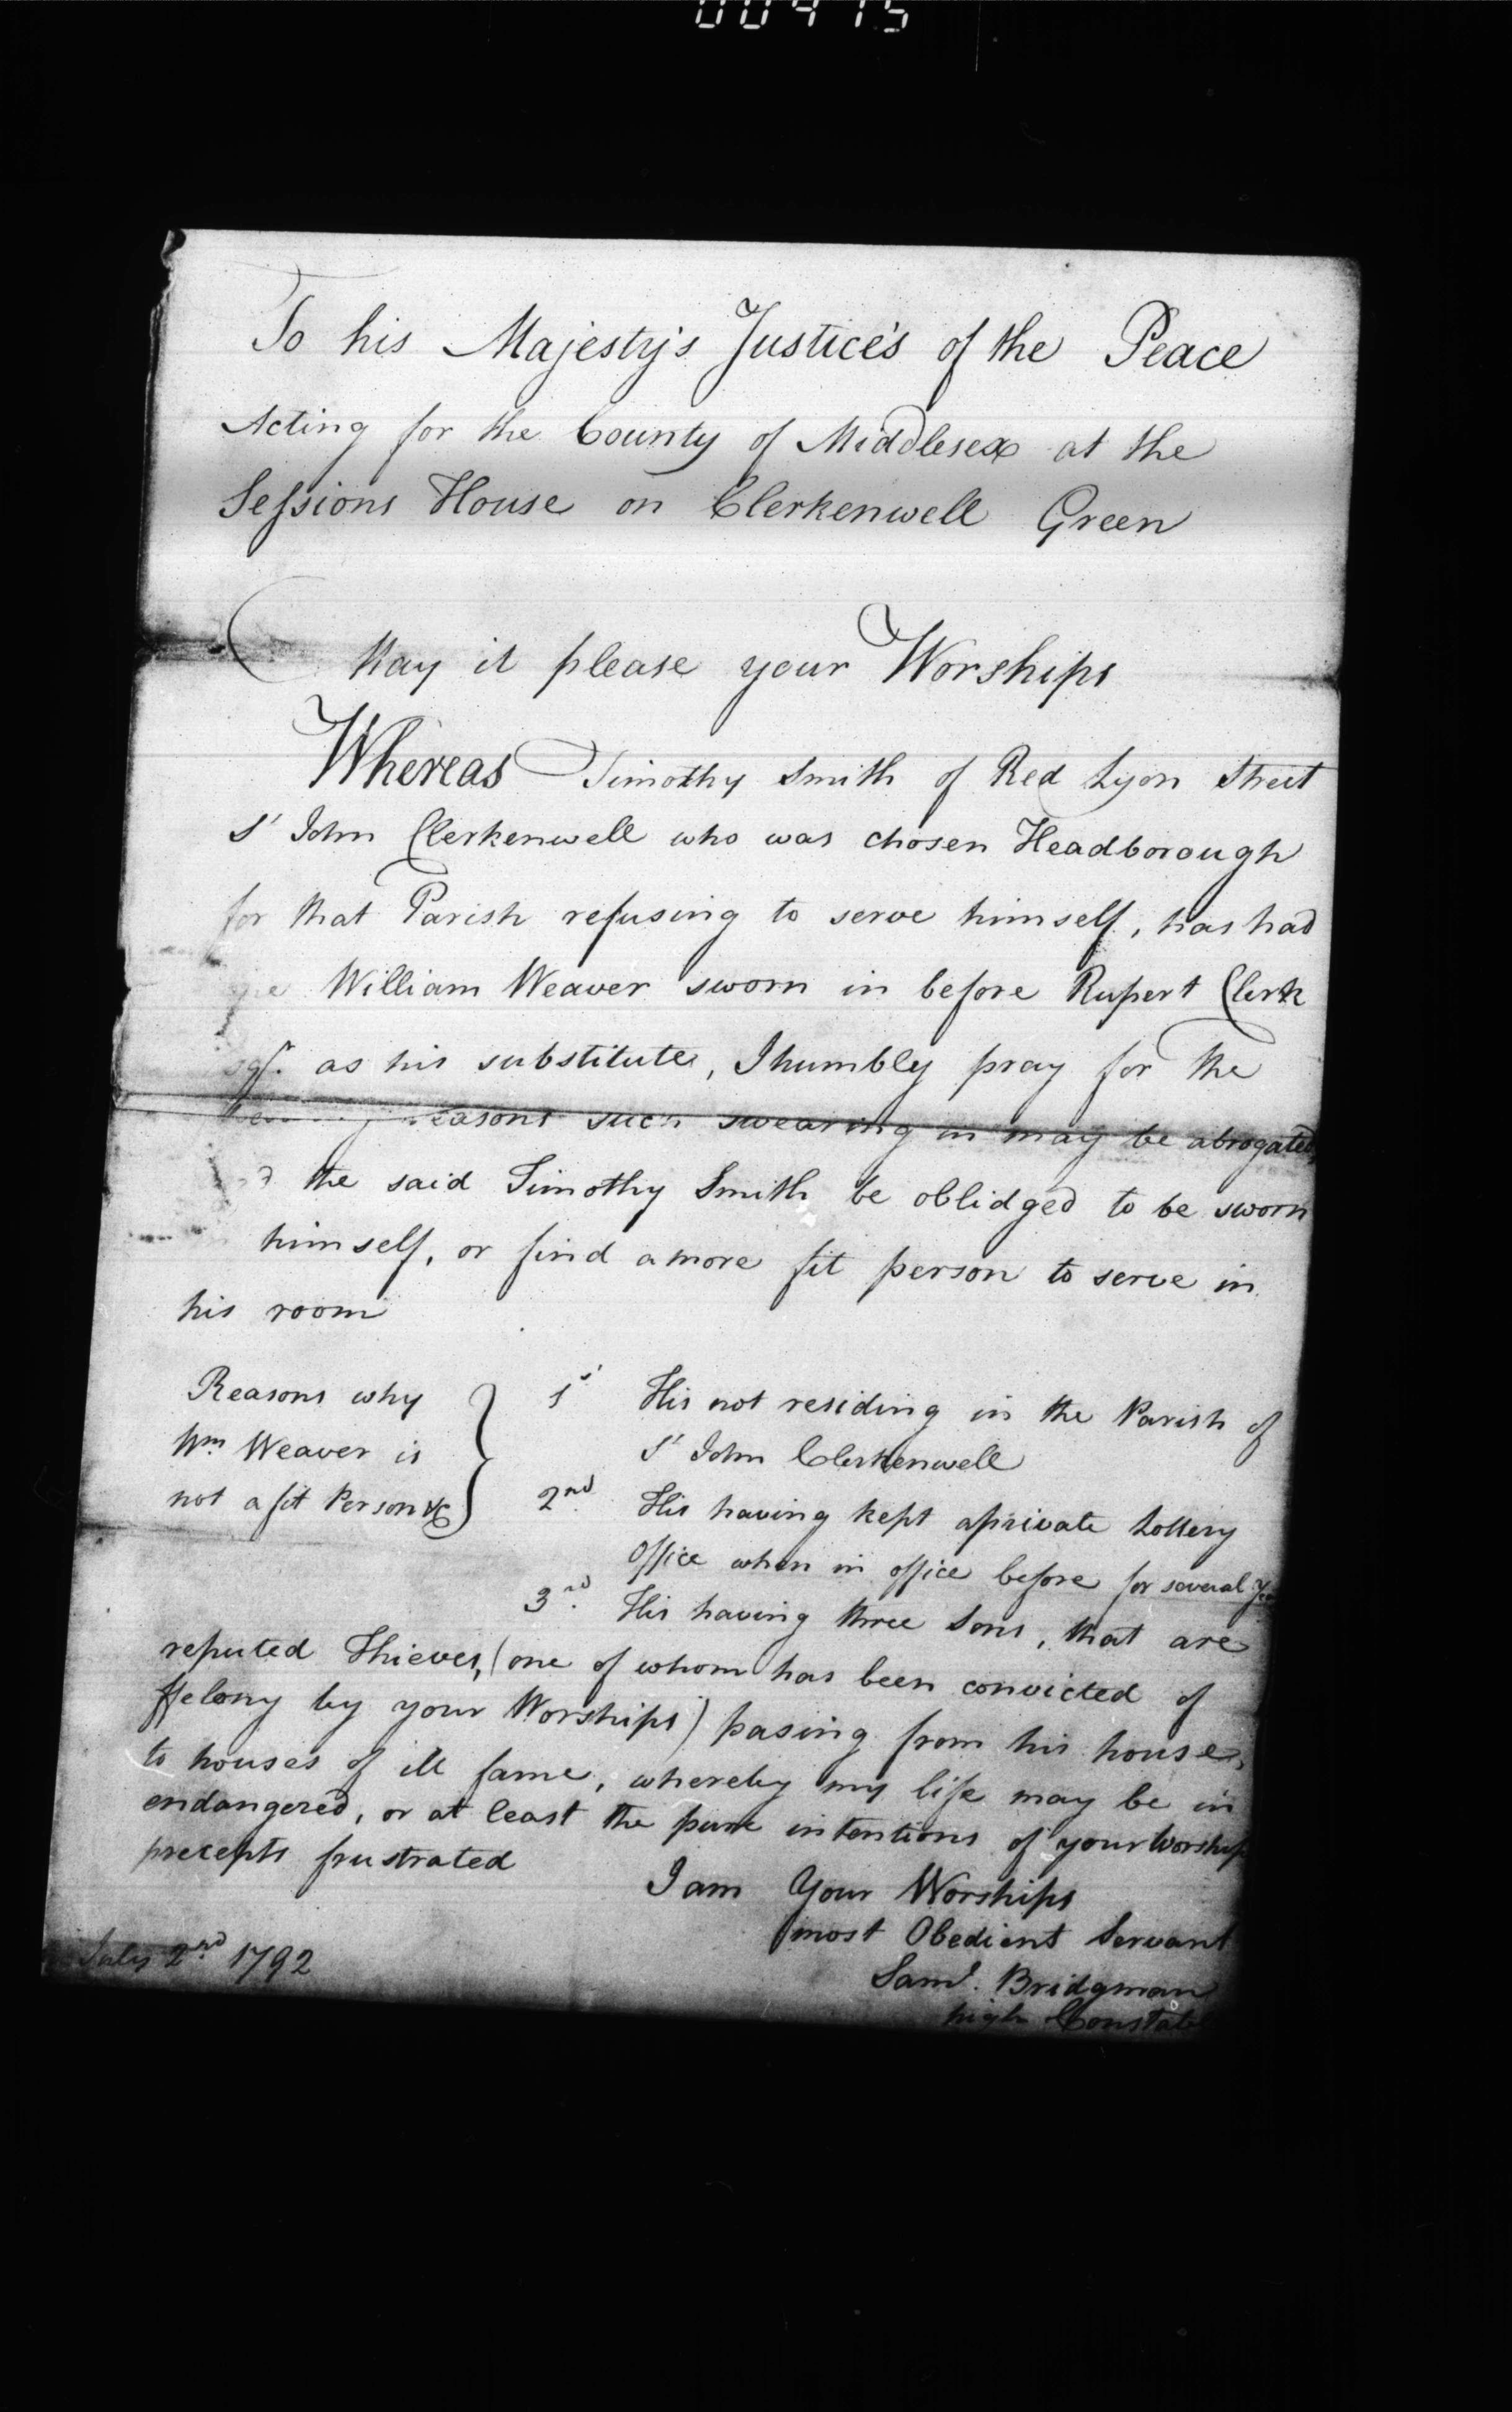 00415
To his Majesty's Justice's of the Peace
Acting for the County of Middlesex at the
Sessions House on Clerkenwell Green
May it please your Worships
Whereas Timothy Smith of Red Lyon Street
St John Clerkenwell who was chosen Headborough
for that Parish refusing to serve himself, has had
William Weaver sworn in before Rupert Clerk
as his substitute, I humbly pray for the
reasons such swearing in may be abrogated,
the said Timothy Smith be oblidged to be sworn
himself, or find a more fit person to serve in
his room
Reasons why
Wm Weaver is
not a fit Person &c
1st His not residing in the Parish of
St John Clerkenwell
2nd. His having kept a private Lottery
Office when in office before for several
3rd. His having three Sons, that are
reputed Thieves, (one of whom has been convicted of
ffelony by your Worships) pasing from his house,
to houses of ill fame, whereby my life may be in
endangered, or at least the pure intentions of your Worships
precepts frustrated
I am Your Worships
most Obedient Servant
Saml. Bridgman
high Constab
July 2nd 1792